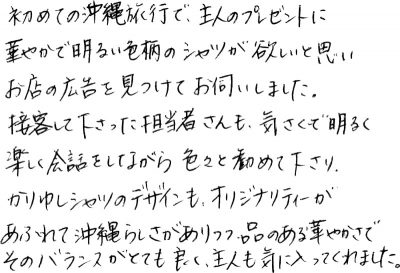 初めての沖縄旅行で、主人のプレゼントに
華やかで明るい色柄のシャツが欲しいと思い
お店の広告を見つけてお伺いしました。
接客して下さった担当者さんも、気さくで明るく
楽しく会話をしながら色々と勧めて下さり、
かりゆしシャツのデザインも、オリジナリティーが
あふれて沖縄らしさがありつつ、品のある華やかさで
そのバランスがとても良く、主人も気に入ってくれました。